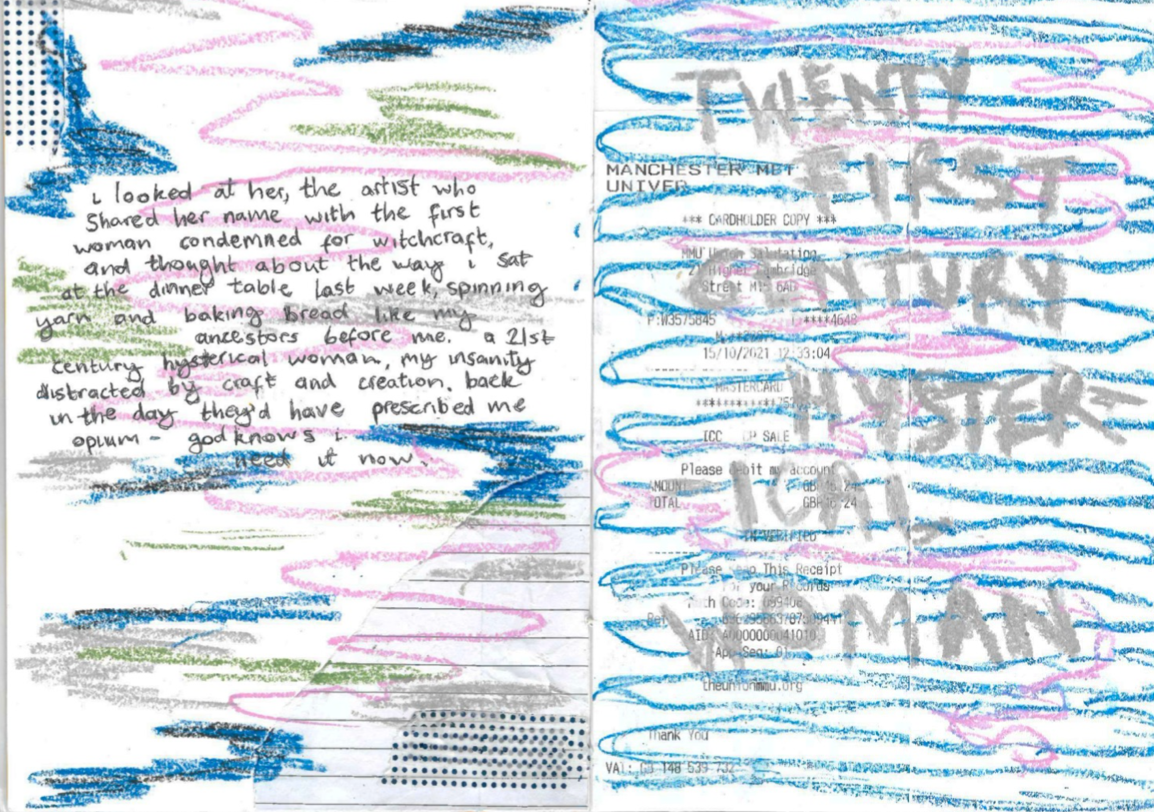 i looked at her, the artist who
shared her name with the first
woman condemned for witchcraft,
and thought about the way i sat
at the dinner table last week, spinning
yarn and baking bread like my
ancestors before me. a 21st
century hysterical woman, my insanity
distracted by craft and creation. back
in the day they'd have prescribed me
opium - god knows i
need it now.
TWENTY
FIRST
CENTURY
HYSTER-
ICAL
WOMAN
MANCHESTER MET
UNIVER
*** CARDHOLDER COPY ***
MMU Union
Street M15 6AD
15/10/2021 12:33:04
MASTERCARD
ICC SALE
Please debit my account
AMOUNT
TOTAL
Please Keep This Receipt
For your Records
Auth Code:
AID: A0000000041010
App Seq:
theunionmmu.org
Thank You